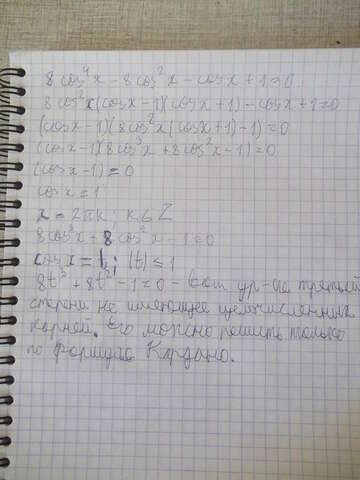 8 cos⁴x - 8 cos²x - cos x + 1 = 0
8 cos²x (cos x - 1)(cos x + 1) - cos x + 1 = 0
(cos x - 1)(8 cos²x (cos x + 1) - 1) = 0
(cos x - 1)(8 cos³x + 8 cos²x - 1) = 0
(cos x - 1) = 0
cos x = 1
x = 2πk; k ∈ Z
8 cos³x + 8 cos²x - 1 = 0
cos x = t; |t| ≤ 1
8t³ + 8t² - 1 = 0 - вот ур-ие третьей
степени не имеющее целочисленных
корней. Его можно решить только
по формуле Кардано.